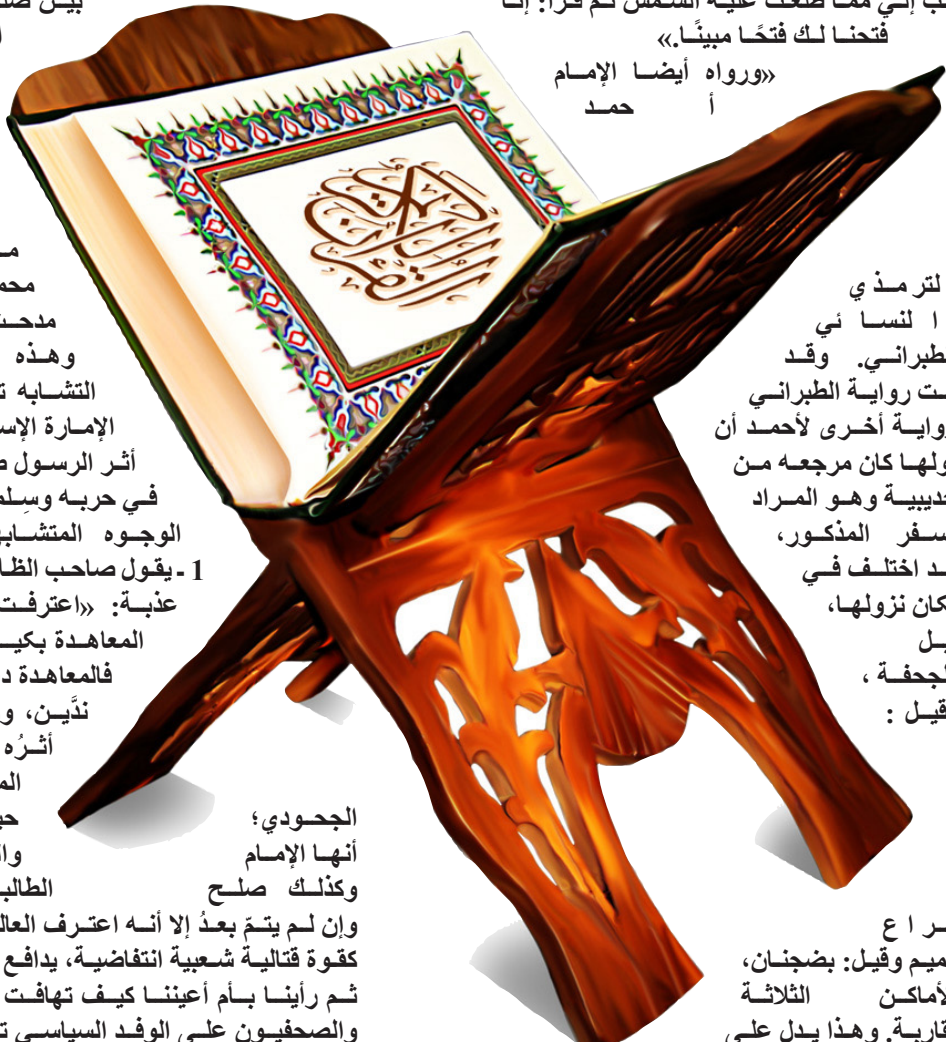 إلي مما طلعت عليه الشمس ثم قرأ: إنا
فتحنا لك فتحًا مبينًا.»
«ورواه أيضا الإمام
أ حمد
لترمذي
ا لنسا ئي
طبراني. وقد
ـت رواية الطبراني
رواية أخرى لأحمد أن
ولها كان مرجعه من
حديبية وهو المراد
سفر المذكور،
ـد اختلف في
كان نزولها،
يل
لجحفة ،
قيل :
ـر ا ع
ميم وقيل: بضجنان،
لأماكن الثلاثة
قاربة. وهذا يدل على
بين صلـ
ا
مـ
محمـ
مدحـ
وهذه
التشابه ت
الإمارة الإسـ
أثر الرسول ص
في حربه وسِلمـ
الوجوه المتشابهـ
1 - يقول صاحب الظـا
عذبة: «اعترفت
المعاهدة بكيـ
فالمعاهدة د
ندَّين، و
أثرُه
المـ
الجحودي؛ حيـ
أنها الإمام وا
وكذلك صلح الطالبـ
وإن لم يتمّ بعدُ إلا أنه اعترف العالـ
كقوة قتالية شعبية انتفاضية، يدافع
ثم رأينا بأم أعيننا كيف تهافت
والصحفيون على الوفد السياسي تـ